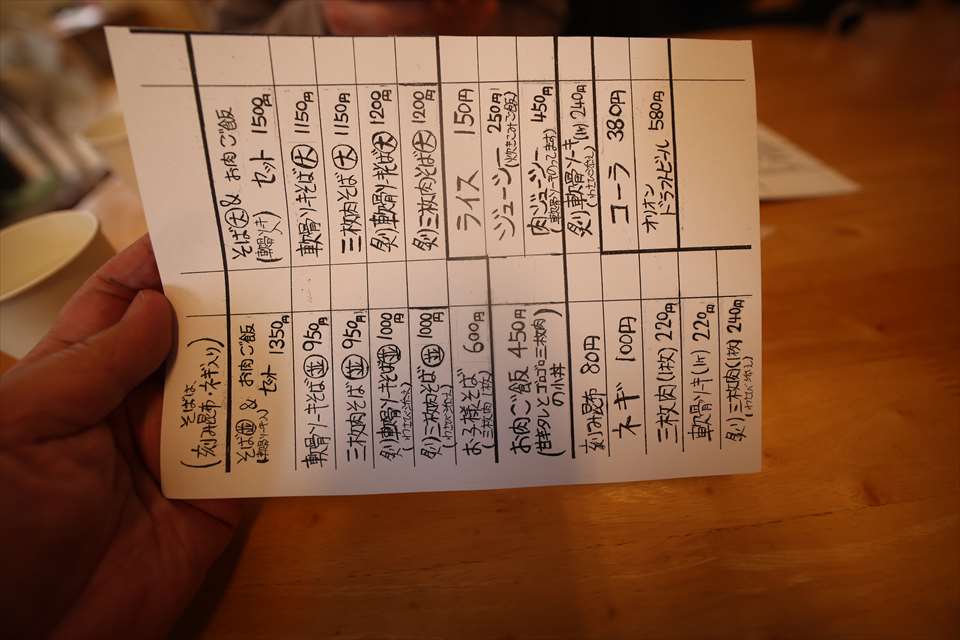 そばは
(刻み昆布・ネギ入り)
そば(並)& お肉ご飯
(軟骨ソーキ) セット 1350円
軟骨ソーキそば(並) 950円
三枚肉そば(並) 950円
炙り軟骨ソーキそば(並) 1000円
(わさび添え)
炙り三枚肉そば(並) 1000円
(わさび添え)
お子様そば 600円
(三枚肉1枚)
お肉ご飯 450円
(甘辛タレとゴロゴロ三枚肉
の小丼)
刻み昆布 80円
ネギ 100円
三枚肉(1枚) 220円
軟骨ソーキ(1ヶ) 220円
炙り三枚肉(1枚) 240円
(わさび添え)
そば(大)& お肉ご飯
(軟骨ソーキ) セット 1500円
軟骨ソーキそば(大) 1150円
三枚肉そば(大) 1150円
炙り軟骨ソーキそば(大) 1200円
炙り三枚肉そば(大) 1200円
ライス 150円
ジューシー 250円
(炊きこみご飯)
肉ジューシー 450円
(軟骨ソーキのってます)
炙り軟骨ソーキ(1ヶ) 240円
(わさび添え)
コーラ 380円
オリオン
ドラフトビール 580円